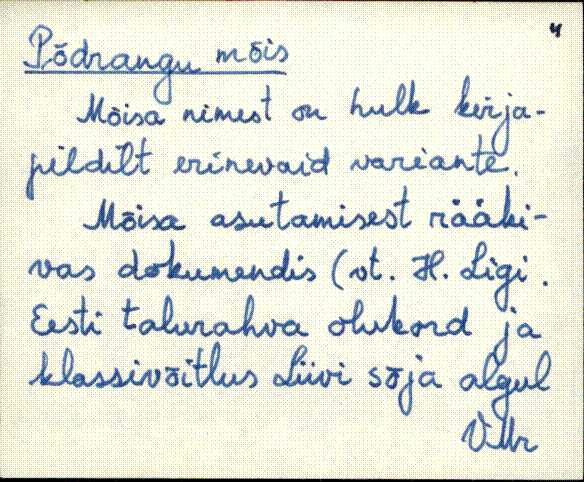 4
Põdrangu mõis
Mõisa nimest on hulk kirja-
pildilt erinevaid variante.
Mõisa asutamisest rääki-
vas dokumendis (vt. H. Ligi.
Eesti talurahva olukord ja
klassivõitlus Liivi sõja algul
VMr